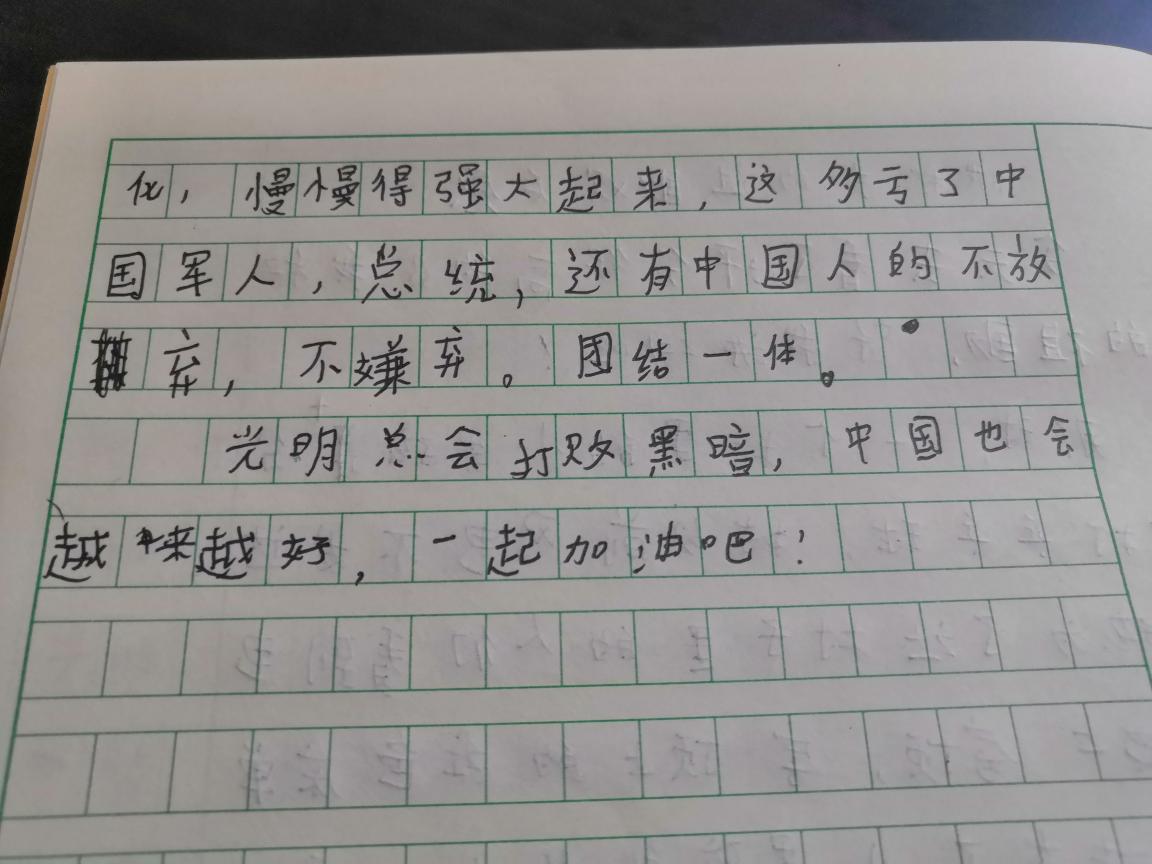 化，慢慢得强大起来，这多亏了中
国军人，总统，还有中国人的不放
弃，不嫌弃。团结一体。
光明总会打败黑暗，中国也会
越来越好，一起加油吧！